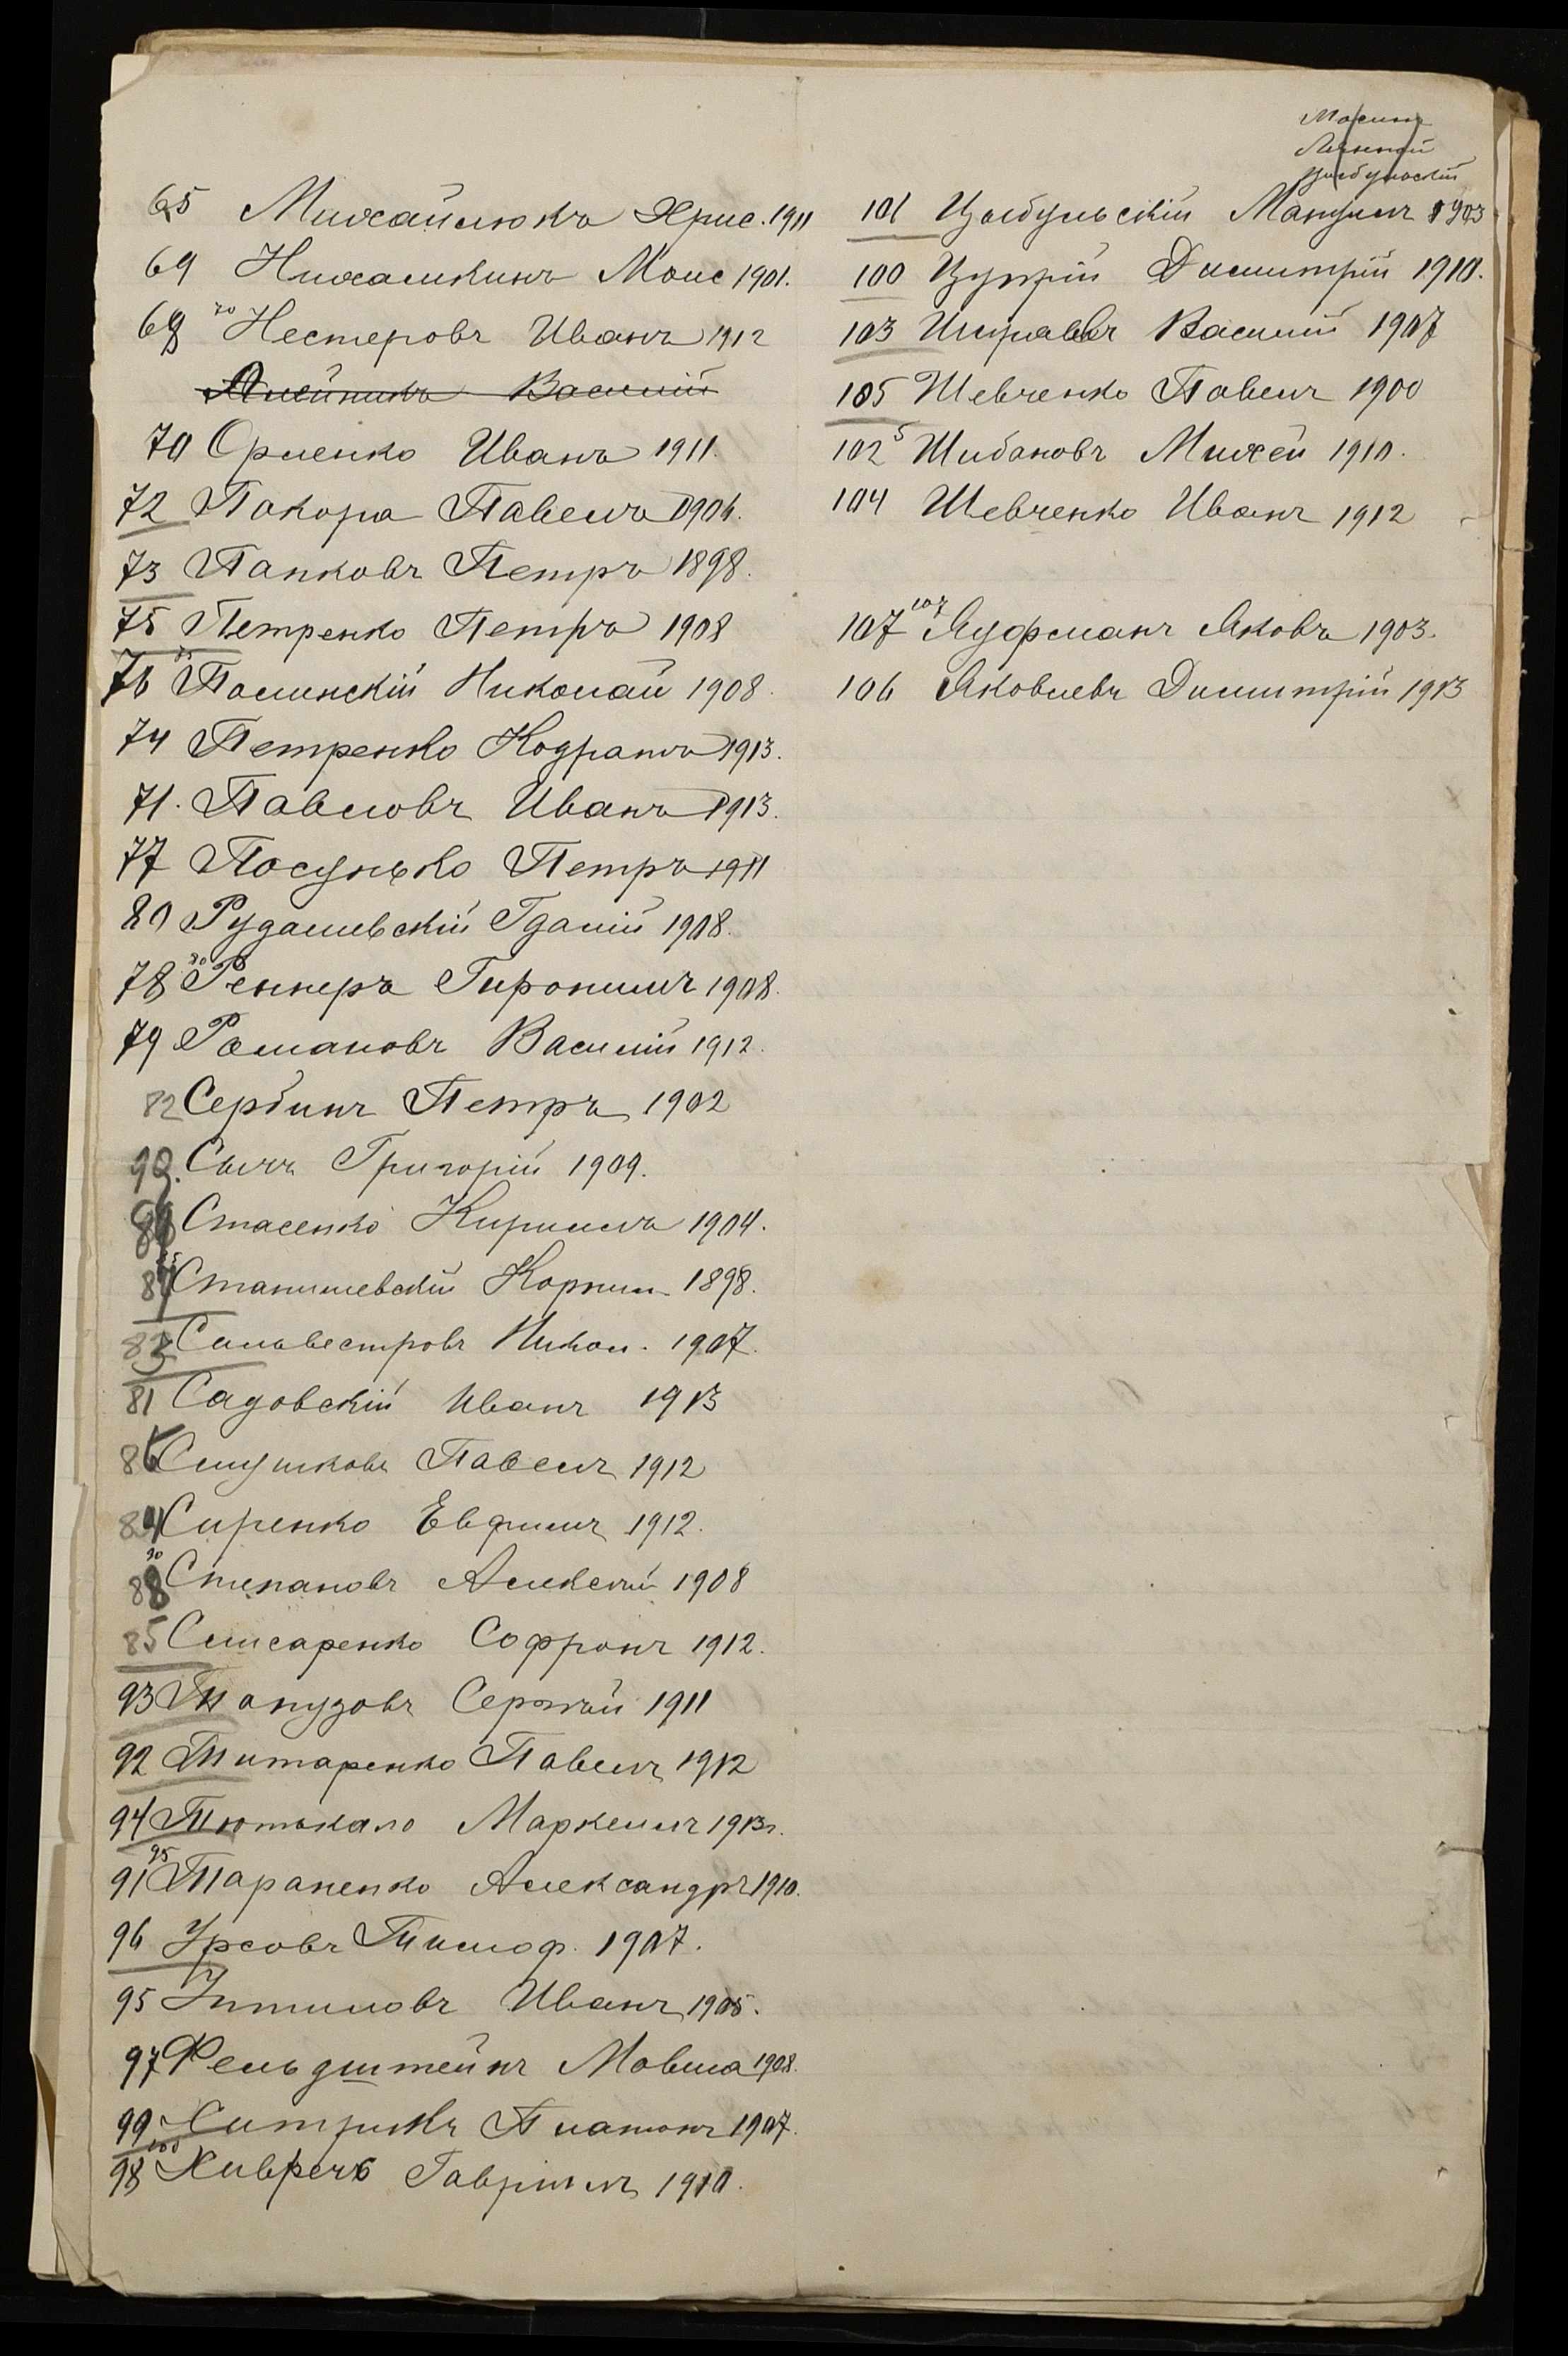 65 Михайлюкъ Хрис. 1911
69 Нихамкинъ Моис 1901.
68 70 Нестеровъ Иванъ 1912
Алейникъ Василій
70 Орленко Иванъ 1911.
72 Пакора Павелъ 1904.
73 Папковъ Петръ 1898.
75 Петренко Петръ 1908
76 Полинскій Николай 1908.
74 Петренко Кодратъ 1913.
71. Павловъ Иванъ 1913.
77 Посунько Петръ 1911
80 Рудашевскій Гдалій 1908.
78 Реннеръ Гиронимъ 1908.
79 Романовъ Василій 1912.
82 Сербинъ Петръ 1902
90. Сычъ Григорій 1909.
Стасенко Кириллъ 1904.
87 Станишевскій Корнил. 1898.
83 Сильвестровъ Никол. 1907.
81 Садовскій Иванъ 1913
86 Слушковъ Павелъ 1912
84 Сиренко Евфимъ 1912.
88 Степановъ Алексѣй 1908
85 Слисаренко Софронъ 1912.
93 Топузовъ Сергѣй 1911
92 Титаренко Павелъ 1912
94 Тютькало Маркелъ 1913г.
91 95 Тараненко Александръ 1910.
96 Урсовъ Тимоф. 1907.
95 Уптиловъ Иванъ 1905.
97 Фельдштейнъ Мовша 1908.
99 Хитрикъ Платонъ 1907.
98 100 Хивречъ Гавріилъ 1910.
Цыбульскій
101 Цыбульскій Мануилъ 1903
100 Цуприй Димитрій 1910.
103 Шуравевъ Василій 1907
105 Шевченко Павелъ 1900
102 5 Шибановъ Михей 1910.
104 Шевченко Иванъ 1912
107 107 Яуфманъ Яковъ 1903.
106 Яковлевъ Димитрій 1913